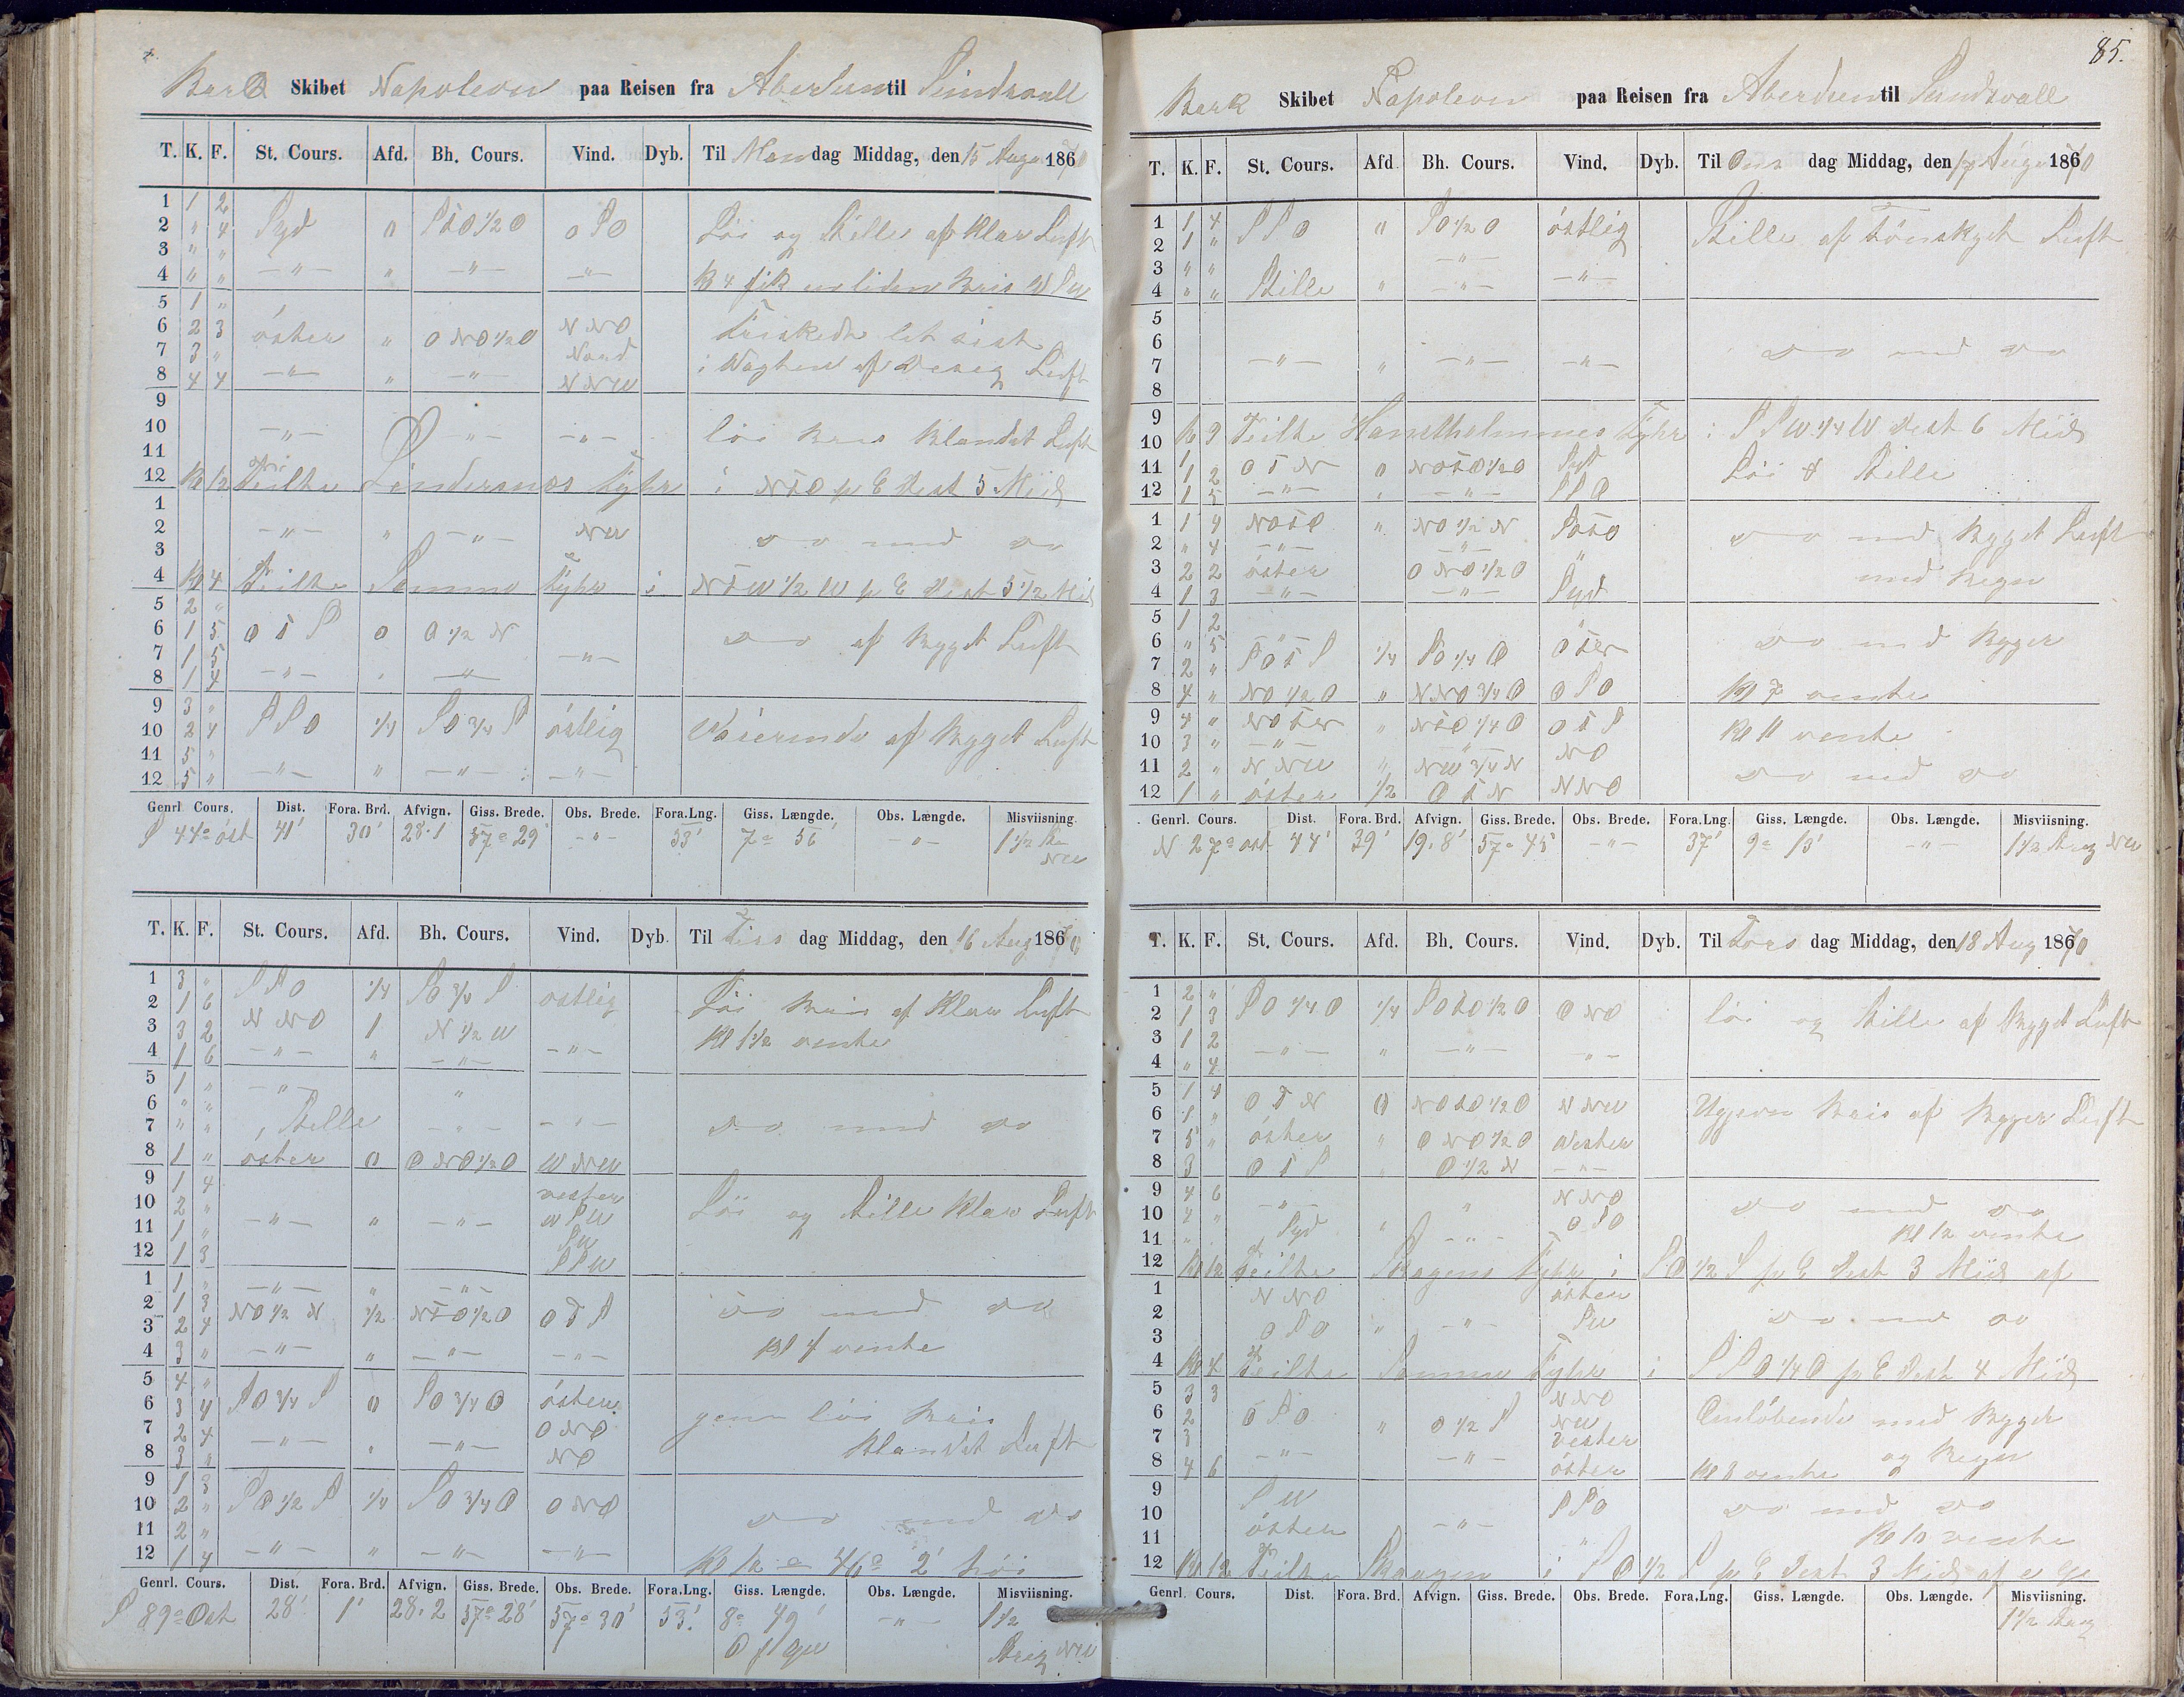 Bark Skibet Napoleon paa Reisen fra Aberdeen til Sundsvall
T. K. F. St. Cours. Afd. Bh. Cours. Vind. Dyb. Til Mandag Middag, den 15 Aug 1870
1 1 2
2 " 4 Syd 0 StO 1/2 O O SO Löi og Stille af Klar Luft
3 " "
4 " " —"— " —"— —"— Kl 4 fik en liden Bris
5 1 "
6 2 3 öster " O NO 1/2 O N NO Friskede lit sist
7 3 " Nord i Vagten af Luft
8 4 4 —"— " —"— N NW
9
10 —"— —"— —"— löi Bris Blandet Luft
11
12 Kl 12 Peilte Lindesnes Fyhr i NtO p C Dist 5 Miil
1
2 —"— " —"— NW do med do
3
4 Kl 4 Peilte Samme Fyhr i NtW 1/2 W p C Dist 5 1/2 Miil
5 2 "
6 1 5 O t S 0 O 1/2 N do af Skyget Luft
7 1 5 —"—
8 1 4 —"— " —"—
9 3 "
10 2 4 S S O 1/4 SO 3/4 S östlig af Skyget Luft
11 5 "
12 5 " —"— " —"— —"—
Genrl. Cours. Dist. Fora. Brd. Afvign. Giss. Brede. Obs. Brede. Fora. Lng. Giss. Længde. Obs. Længde. Misviisning.
S 44° öst 41' 30' 28.1 57° 29' —"— 53' 7° 56' —"— 1 1/2 Str NW
T. K. F. St. Cours. Afd. Bh. Cours. Vind. Dyb. Til Tirsdag Middag, den 16 Aug 1870
1 3 " S S O 1/4 SO 3/4 S östlig Löi Bris af Klar Luft
2 1 6
3 3 2 N NO 1 N 1/2 W Kl 1 1/2 vente
4 1 6 —"— " —"— —"—
5 1 " —"— "
6 " "
7 " " Stille —"— —"— do med do
8 1 " öster 0 O NO 1/2 O W NW
9 1 4 vester
10 2 " W SW Löi og Stille Klar Luft
11 1 " —"— " —"— SW
12 1 3 S S W
1 1 " —"— " —"—
2 1 3 NO 1/2 N 1/2 NtO 1/2 O O t S do med do
3 2 4
4 3 " —"— " —"— —"— Kl 4 vente
5 4 "
6 3 4 SO 3/4 S 0 SO 3/4 O öster löi Bris
7 2 4 O NO
8 3 " —"— " —"— NO Blandet Luft
9 1 3
10 2 " SO 1/2 S 1/4 SO 3/4 O O NO do med do
11 2 "
12 1 4 —"— " —"— —"— Kl 12 = 46° 2' höi
Genrl. Cours. Dist. Fora. Brd. Afvign. Giss. Brede. Obs. Brede. Fora. Lng. Giss. Længde. Obs. Længde. Misviisning.
S 89° Ost 28' 1' 28.2 57° 28' 57° 30' 53' 8° 49' —"— 1 1/2
O f Streg NW
85.
Bark Skibet Napoleon paa Reisen fra Aberdeen til Sundsvall
T. K. F. St. Cours. Afd. Bh. Cours. Vind. Dyb. Til Onsdag Middag, den 17 Aug 1870
1 1 4 S S O " SO 1/2 O östlig Stille af Luft
2 1 "
3 " " —"— —"—
4 " " Stille " —"—
5
6
7 —"— " —"— —"— do med do
8
9
10 Kl 9 Peilte Hanstholmnes Fyhr i S S W 1/4 W Dist 6 Miil
11 1 2 O t N 0 NOtO 1/2 O Syd Löi & Stille
12 1 5 —"— " —"— S S O
1 1 4 NOtO " NO 1/2 N SOtO do med Skyget Luft
2 " 4 —"— " "
3 2 2 öster O NO 1/2 O med Regn
4 1 3 —"— —"— Syd
5 1 2
6 " 5 SOtS 1/4 SO 1/4 O öster do med Skyger
7 2 "
8 4 " NO 1/2 O " N NO 3/4 O O SO Kl 7 vente
9 4 " NO ter " NtO 1/4 O O t S
10 3 " —"— " NO Kl 11 vente
11 2 " N NW " NW 3/4 N
12 1 " öster 1/2 O t N N NO do med do
Genrl. Cours. Dist. Fora. Brd. Afvign. Giss. Brede. Obs. Brede. Fora. Lng. Giss. Længde. Obs. Længde. Misviisning.
N 27° ost 44' 39' 19.8' 57° 45' —"— 37' 9° 13' —"— 1 1/2 Streg NW
T. K. F. St. Cours. Afd. Bh. Cours. Vind. Dyb. Til Torsdag Middag, den 18 Aug 1870
1 2 "
2 1 3 SO 1/4 O 1/4 SOtO 1/2 O O NO löi og Stille af Skyget Luft
3 1 2
4 " 4 —"— " —"— —"—
5 1 4
6 1 " O t N 0 NOtO 1/2 O N NW Ugjevn Bris af Skyger Luft
7 5 " öster " O NO 1/2 O Vester
8 3 O t S " O 1/2 N —"—
9 4 6 —"— " N NO
10 4 " Syd " O SO do med do
11 " —"— Kl 12 vente
12 Kl 12 Peilte Skagens Fyhr i SO 1/2 S p C Dist 3 Miil af
1 N NO östen
2 SW do med do
3 O SO " —"—
4 Kl 4 Peilte Samme Fyhr i S S O 1/4 O p C Dist 4 Miil
5 3 3 N NO
6 2 O SO " O 1/2 S NW Omlöbende med Skyger
7 3 Vester
8 4 6 —"— —"— öster Kl 8 vente og Regn
9
10 S W S S O do med do
11 öster —"— " Kl 10 vente
12 Kl 12 Peilte Skagen i SO 1/2 S p C Dist 3 Miil af
Genrl. Cours. Dist. Fora. Brd. Afvign. Giss. Brede. Obs. Brede. Fora. Lng. Giss. Længde. Obs. Længde. Misviisning.
1 1/2 Streg